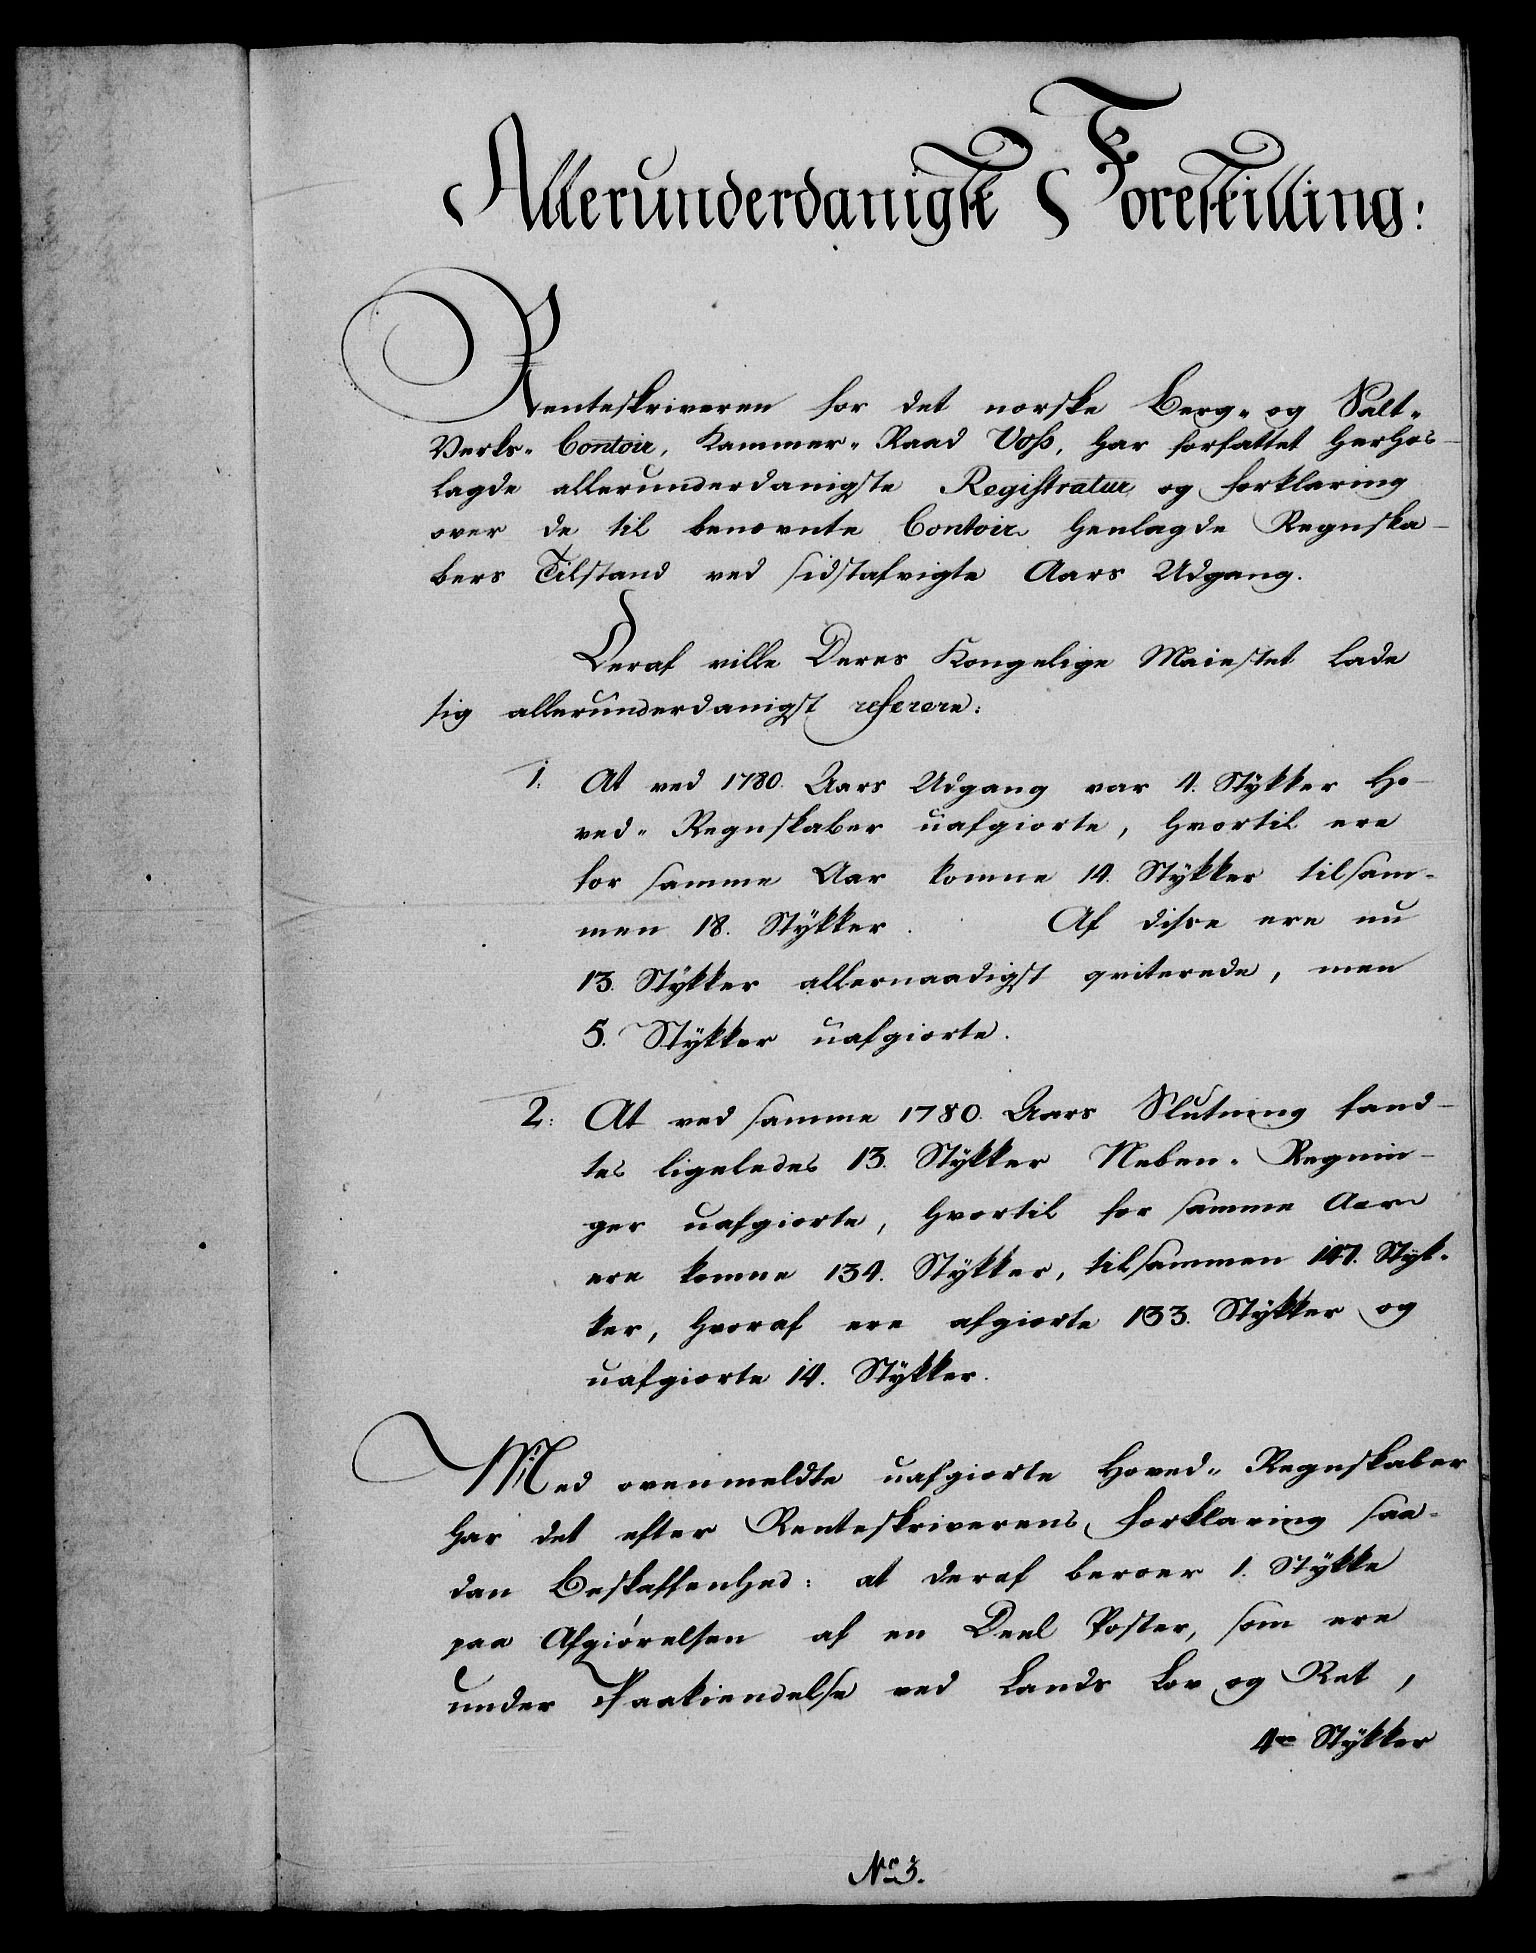 Allerunderdanigst Forestilling:
Renteskriveren for det norske Berg- og Salt-
Verks- Contoir, Kammer-Raad Voss, har forfattet herhos-
lagde allerunderdanigste Registratur og Forklaring
over de til benevnte Contoir henlagde Regnska-
bers Tilstand ved sidstafvigte Aars Udgang.
Deraf ville Deres Kongelige Maiestet lade
sig allerunderdanigst referere:
1. At ved 1780. Aars Udgang var 4. Stÿkker Ho-
ved-Regnskaber uafgiorte, hvortil ere
for samme Aar komne 14. Stÿkker tilsam-
men 18. Stÿkker. Af disse ere nu
13. Stÿkker allernaadigst qviterede, men
5. Stÿkker uafgiorte.
2: At ved samme 1780. Aars Slutning fand-
tes ligeledes 13. Stÿkker Neben-Regnin-
ger uafgiorte, hvortil for samme Aar
ere komne 134. Stÿkker, tilsammen 147. Stÿk-
ker, hvoraf ere afgiorte 133. Stÿkker og
uafgiorte 14. Stÿkker.
Med ovenmeldte uafgiorte Hoved-Regnskaber
har det efter Renteskriverens Forklaring saa-
dan Beskaffenhed: at deraf beroer 1. Stÿkke
paa Afgiörelsen af en Deel Poster, som ere
under Paakiendelse ved Lands Lov og Ret,
4re Stÿkker
No 3.